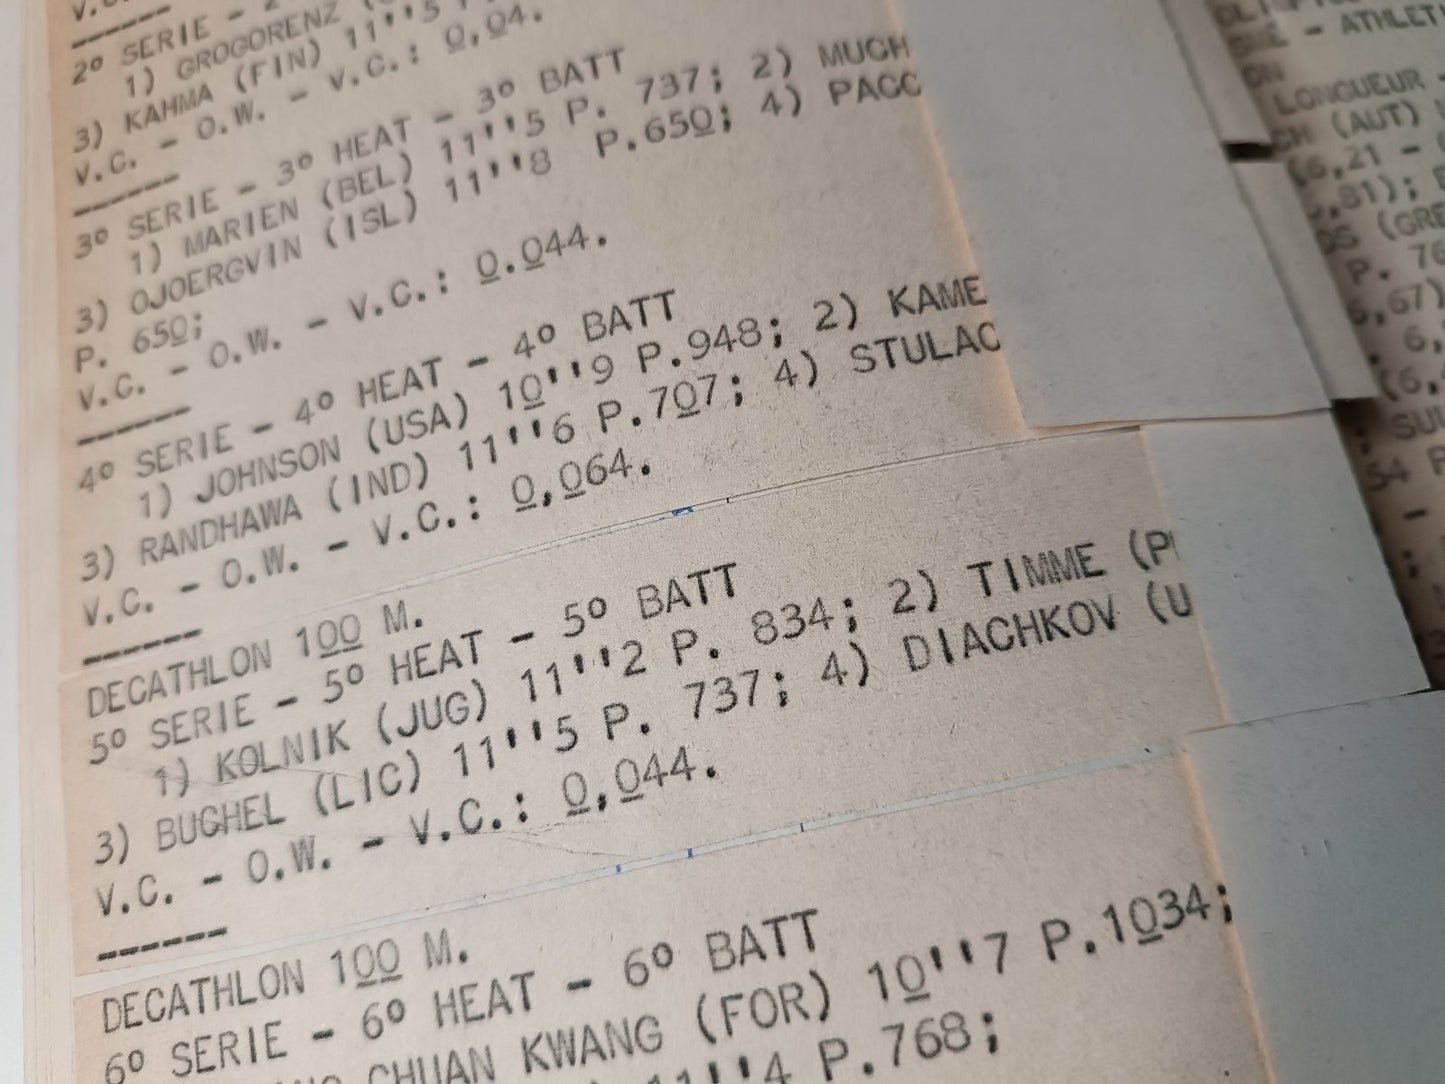 2º SERIE -
1) GROGORENZ
3) KAHMA (FIN) 11''5
V.C. - O.W. - V.C.: 0,04.
------
3º SERIE - 3º HEAT - 3º BATT
1) MARIEN (BEL) 11''5 P. 737; 2) MUCH
3) OJOERGVIN (ISL) 11''8 P.650; 4) PACC
P. 650;
V.C. - O.W. - V.C.: 0.044.
------
4º SERIE - 4º HEAT - 4º BATT
1) JOHNSON (USA) 10''9 P.948; 2) KAME
3) RANDHAWA (IND) 11''6 P.707; 4) STULAC
V.C. - O.W. - V.C.: 0,064.
------
DECATHLON 100 M.
5º SERIE - 5º HEAT - 5º BATT
1) KOLNIK (JUG) 11''2 P. 834; 2) TIMME (P
3) BUGHEL (LIC) 11''5 P. 737; 4) DIACHKOV (U
V.C. - O.W. - V.C.: 0,044.
------
DECATHLON 100 M.
6º SERIE - 6º HEAT - 6º BATT
CHUAN KWANG (FOR) 10''7 P.1034;
11''4 P.768;
- ATHLET
ON
LONGUEUR -
(AUT)
(6,21 -
,81);
(GRE
P. 76
,67)
6,
(6,
SU
54